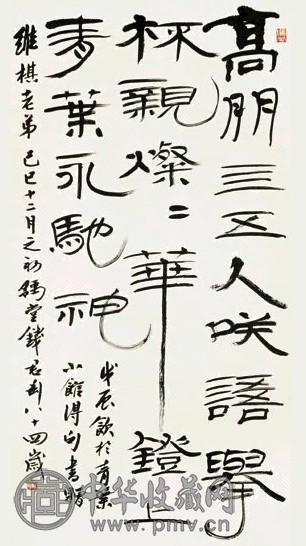 高朋三五人咲語舉
杯親燦〻華鐙上
青葉永馳神
戊辰飲於青葉
小館得句書贈
維棋老弟 己巳十二月之初豫堂錢君匋八十四歲
中华收藏网
www.pmcv.cn